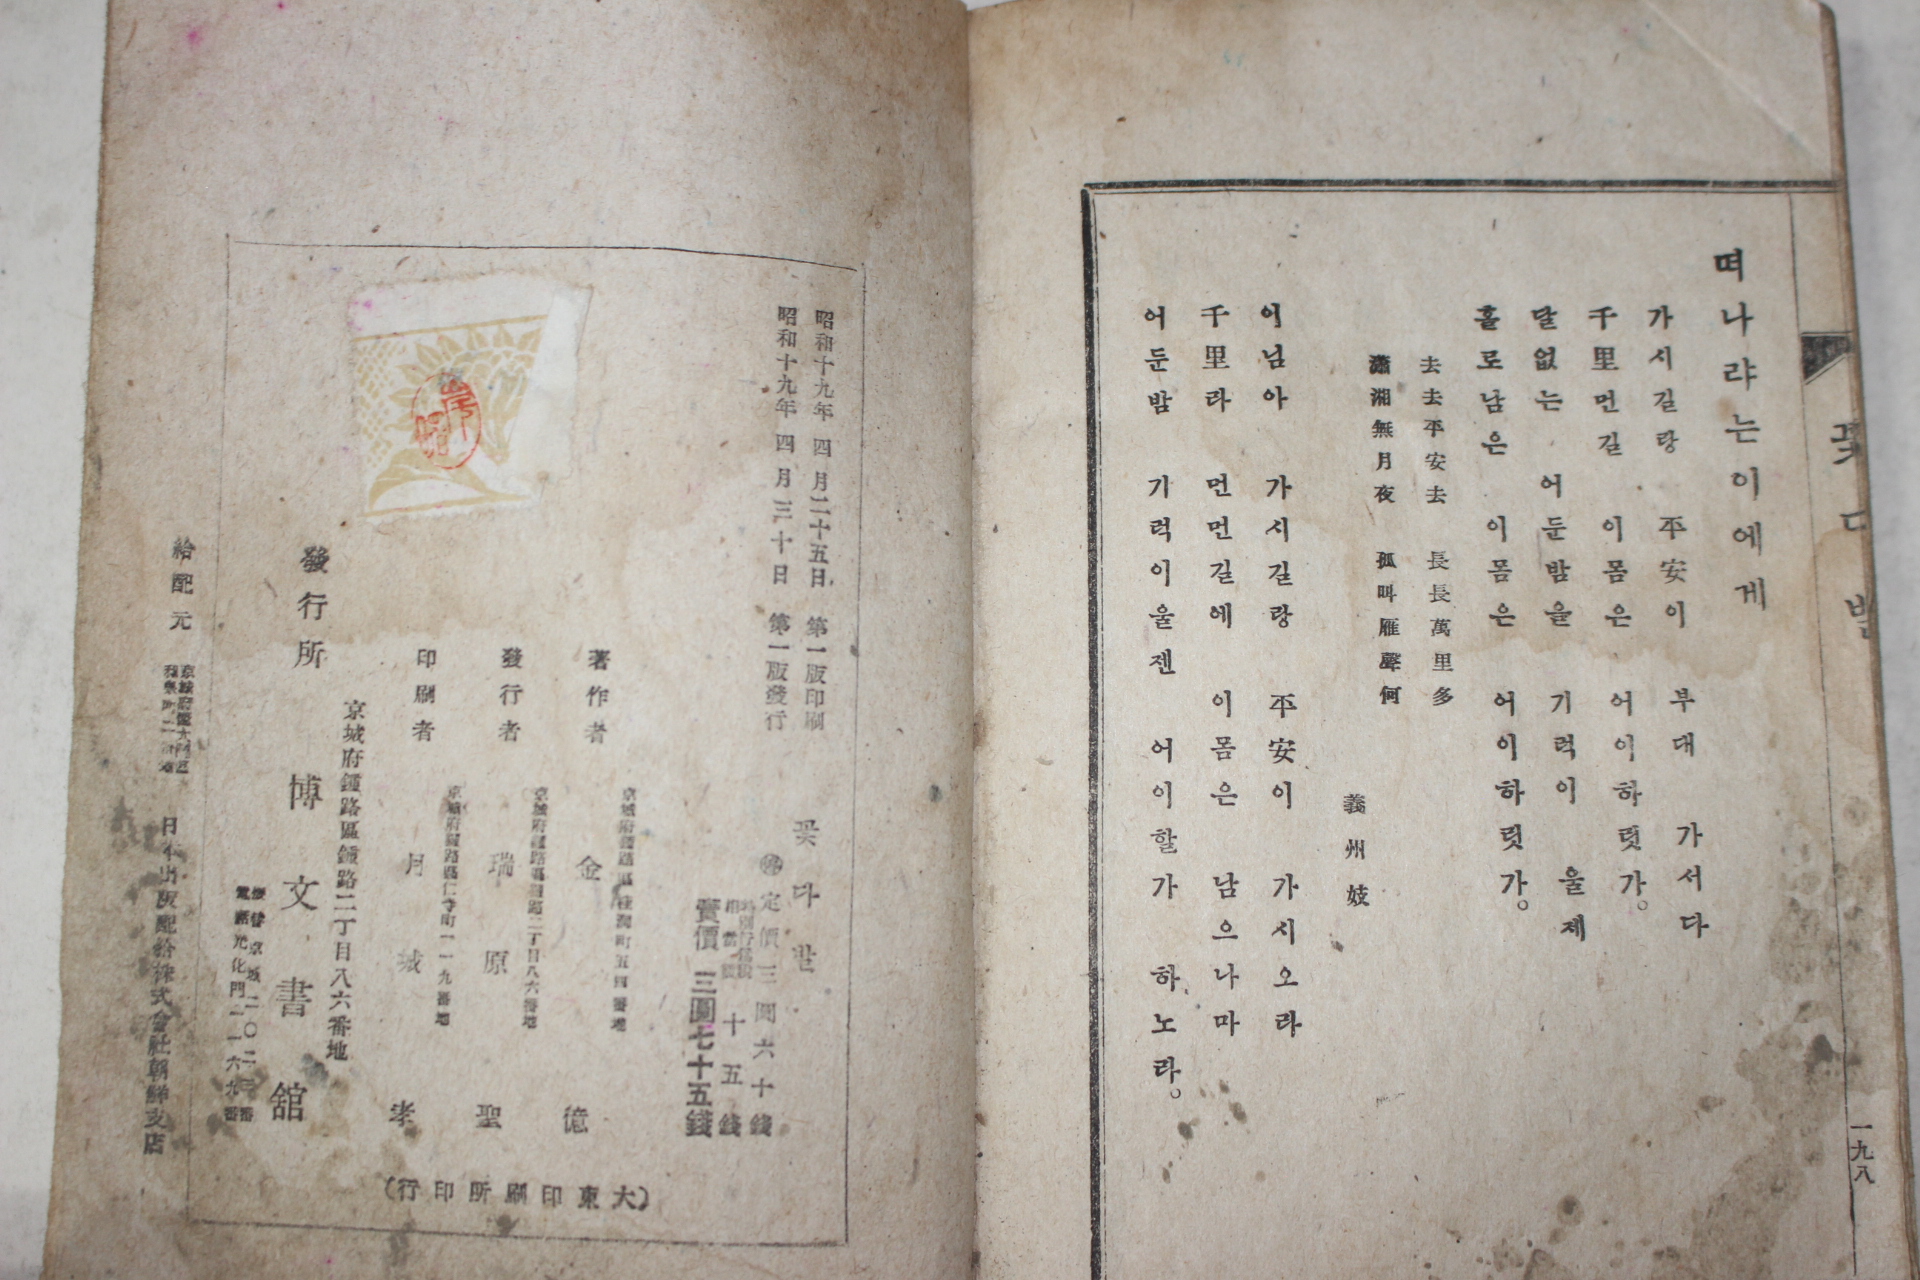 꽃다발
一九八
떠나랴는이에게
가시길랑 平安이 부대 가서다
千里먼길 이몸은 어이하렷가。
달없는 어둔밤을 기럭이 울제
홀로남은 이몸은 어이하렷가。
去去平安去 長長萬里多
瀟湘無月夜 孤叫雁聲何
義州妓
이님아 가시길랑 平安이 가시오라
千里라 먼먼길에 이몸은 남으나마
어둔밤 기럭이울젠 어이할가 하노라。
昭和十九年 四月二十五日 第一版印刷
昭和十九年 四月三十日 第一版發行
꽃다발
定價 三圓六十錢
十五錢
賣價 三圓七十五錢
著作者 金億
發行者 瑞原聖
京城府鍾路區鍾路二丁目八六番地
印刷者 月城孝
京城府鍾路區仁寺町一一九番地
京城府鍾路區鍾路二丁目八六番地
發行所 博文書舘
振替京城二〇二三番
電話光化門二一六九番
給配元
日本出版配給株式會社朝鮮支店
(大東印刷所印行)